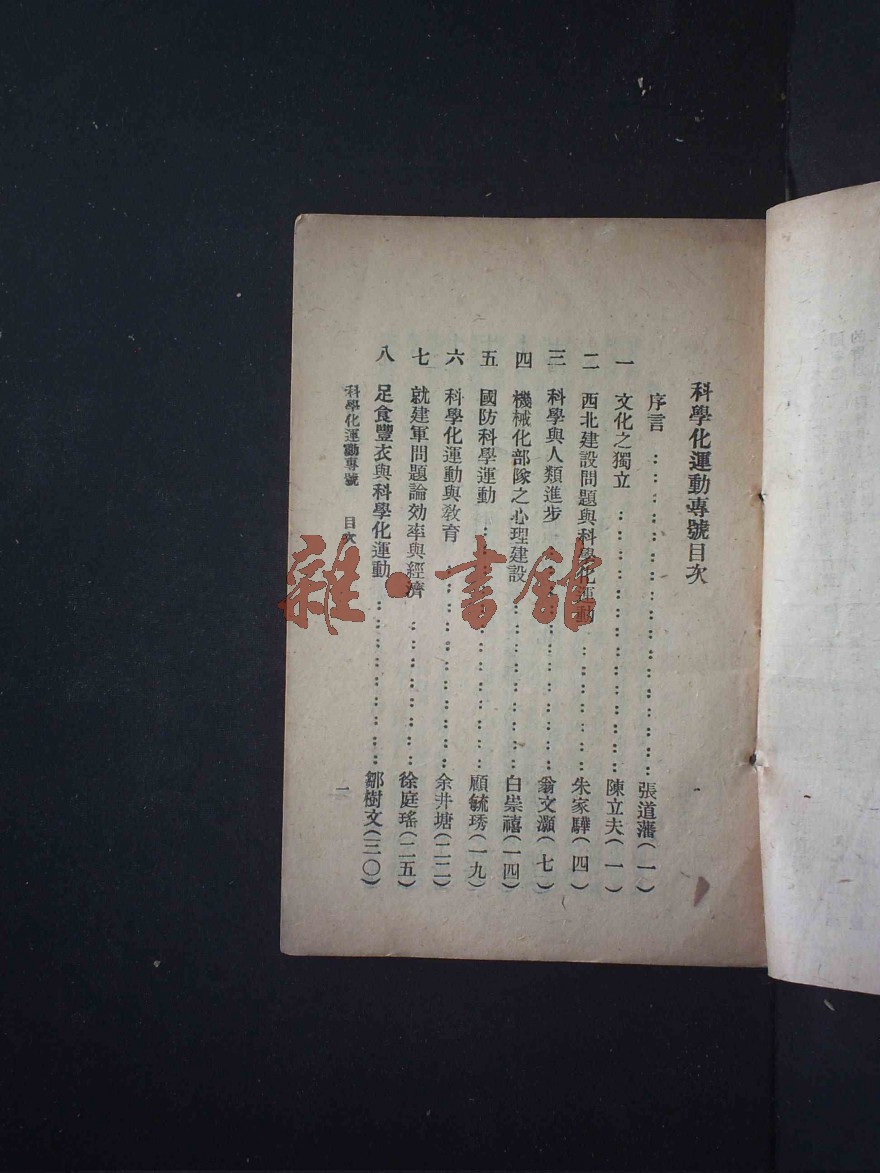 科學化運動專號目次
序言 ⋯⋯⋯⋯⋯⋯⋯⋯ 張道藩(一)
一 文化之獨立 ⋯⋯⋯⋯⋯⋯⋯⋯ 陳立夫(一)
二 西北建設問題與科學化運動 ⋯⋯⋯⋯ 朱家驊(四)
三 科學與人類進步 ⋯⋯⋯⋯⋯⋯ 翁文灝(七)
四 機械化部隊之心理建設 ⋯⋯⋯⋯⋯ 白崇禧(一四)
五 國防科學運動 ⋯⋯⋯⋯⋯⋯⋯ 顧毓琇(一九)
六 科學化運動與敎育 ⋯⋯⋯⋯⋯⋯ 余井塘(二二)
七 就建軍問題論効率與經濟 ⋯⋯⋯⋯ 徐庭瑤(二五)
八 足食豐衣與科學化運動 ⋯⋯⋯⋯⋯ 鄒樹文(三〇)
科學化運動專號 目次 一
雜·書館